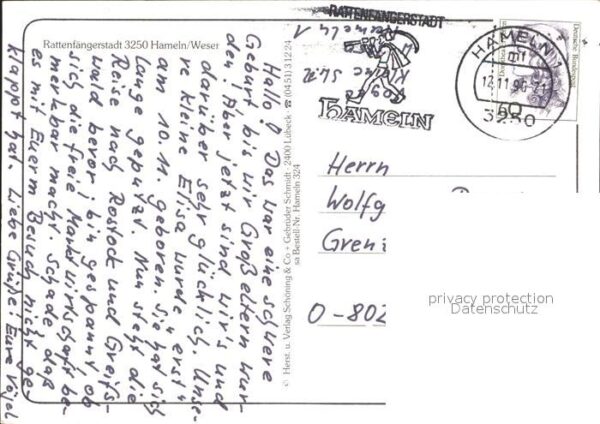 Rattenfängerstadt 3250 Hameln/Weser
Hallo! Das war eine schwere
Geburt, bis wir Großeltern wur-
den! Aber jetzt sind wir's und
darüber sehr glücklich. Unse-
re kleine Elisa wurde "erst"
am 10.11. geboren. Sie hat sich
lange geputzt. Nun steht die
Reise nach Rostock und Greifs-
wald bevor; bin gespannt, ob
sich die freie Marktwirtschaft be-
merkbar macht. Schade, daß
es mit Euerm Besuch nicht ge-
klappt hat. Liebe Grüße! Eure Vögel
© Herst. u. Verlag Schöning & Co + Gebrüder Schmidt · 2400 Lübeck · ☎ (0451) 31224
sa Bestell-Nr. Hameln 324
RATTENFÄNGERSTADT
HAMELN
HAMELN 1
mf
12.11.90-21
3250
60
Deutsche Bundespost
Herrn
Wolfg
Gren
O-802
privacy protection
Datenschutz